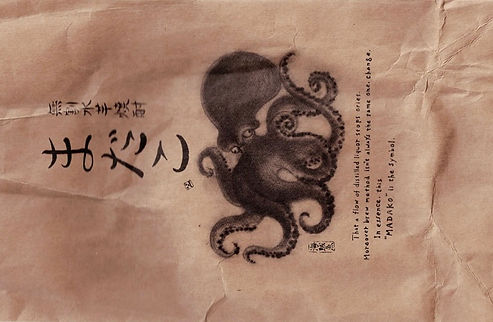 無割水芋焼酎
まだこ
That a flow of distilled liquor stops ories.
Moreover brew method isn't always the same one. change.
In essence, this
"MADAKO" is the symbol.